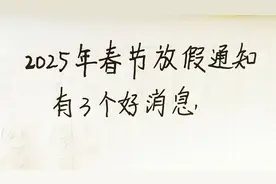 2025年春节放假通知
有3个好消息,